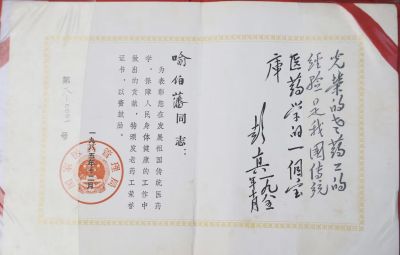 光荣的老药工的
经验是我國传统
医药学的一個宝
库
彭真一九八五
喻伯藩同志：
为表彰您在发展祖国传统医药
学、保障人民身体健康的工作中
做出的贡献，特颁发老药工荣誉
证书，以资鼓励。
国家医药管理局
一九八五年十二月
第
号